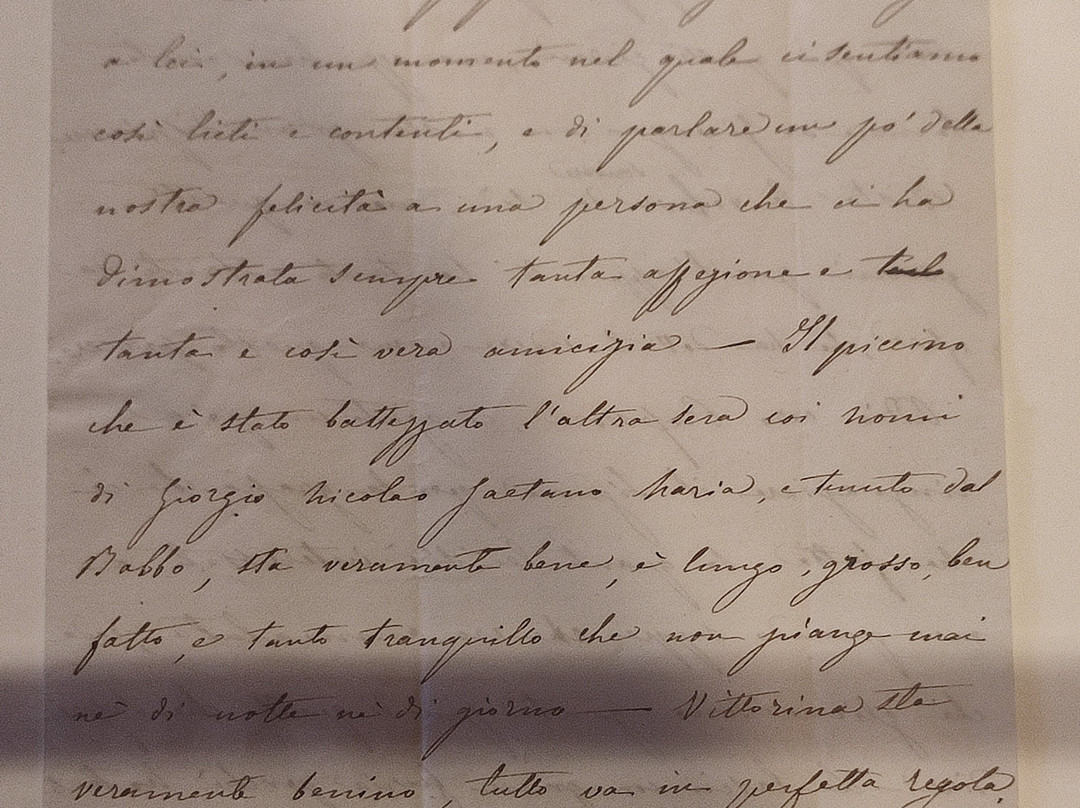 a lei, in un momento nel quale ci sentiamo
così lieti e contenti, e di parlare un pò' della
nostra felicità a una persona che ci ha
dimostrata sempre tanta affezione e
tanta e così vera amicizia — Il piccino
che è stato battezzato l'altra sera coi nomi
di Giorgio Nicolao Gaetano Maria, e tenuto dal
Babbo, sta veramente bene, è lungo, grosso, ben
fatto, e tanto tranquillo che non piange mai
nè di notte nè di giorno — Vittorina sta
veramente benino, tutto va in perfetta regola